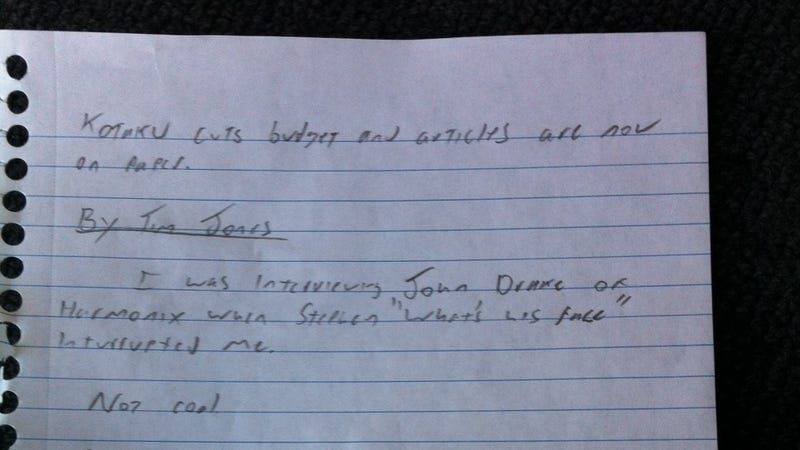 Kotaku cuts budget and articles are now
on paper.
By Jim Jones
I was interviewing John Drake of
Harmonix when Stephen "What's his face"
interrupted me.
Not cool